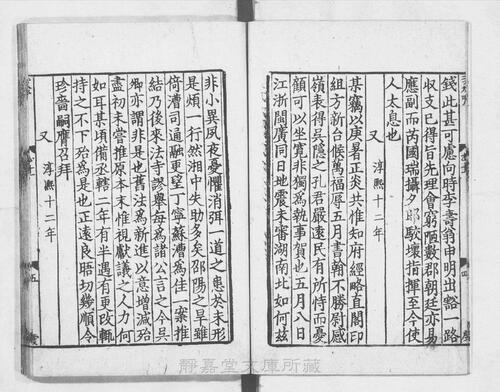 錢此甚可慮向時李壽翁申明出豁一路
収支已得旨先理會窮陋數郡朝廷亦易
應副而芮國瑞攝夕郎駮壞指揮至今使
人太息也
又 淳熙十二年
某竊以庚暑正炎共惟知府經略直閣印
組方新台候萬福辱五月書翰不勝慰感
嶺表得吳隱之孔君嚴遠民有所恃而憂
顔可以坐寛非獨為執事賀也五月八日
江浙閩廣同日地震未審湖南北如何茲
非小異夙夜憂懼消弭一道之患於未形
是煩一行然湘中失助多矣邵陽之旱雖
倚漕司通融更望丁寧蘇漕為佳一案推
結乃後來法寺謬舉每為諸公言之今呉
卿亦謂非是也舊法為新進以意増減殆
盡初未嘗推原本末惟視獻議之人力何
如耳某頃備丞轄二年有半遇有更改輒
持之不下殆為是也正遠良晤切幾順令
珍嗇嗣膺召拜
又 淳熙十二年
五
静嘉堂文庫所蔵